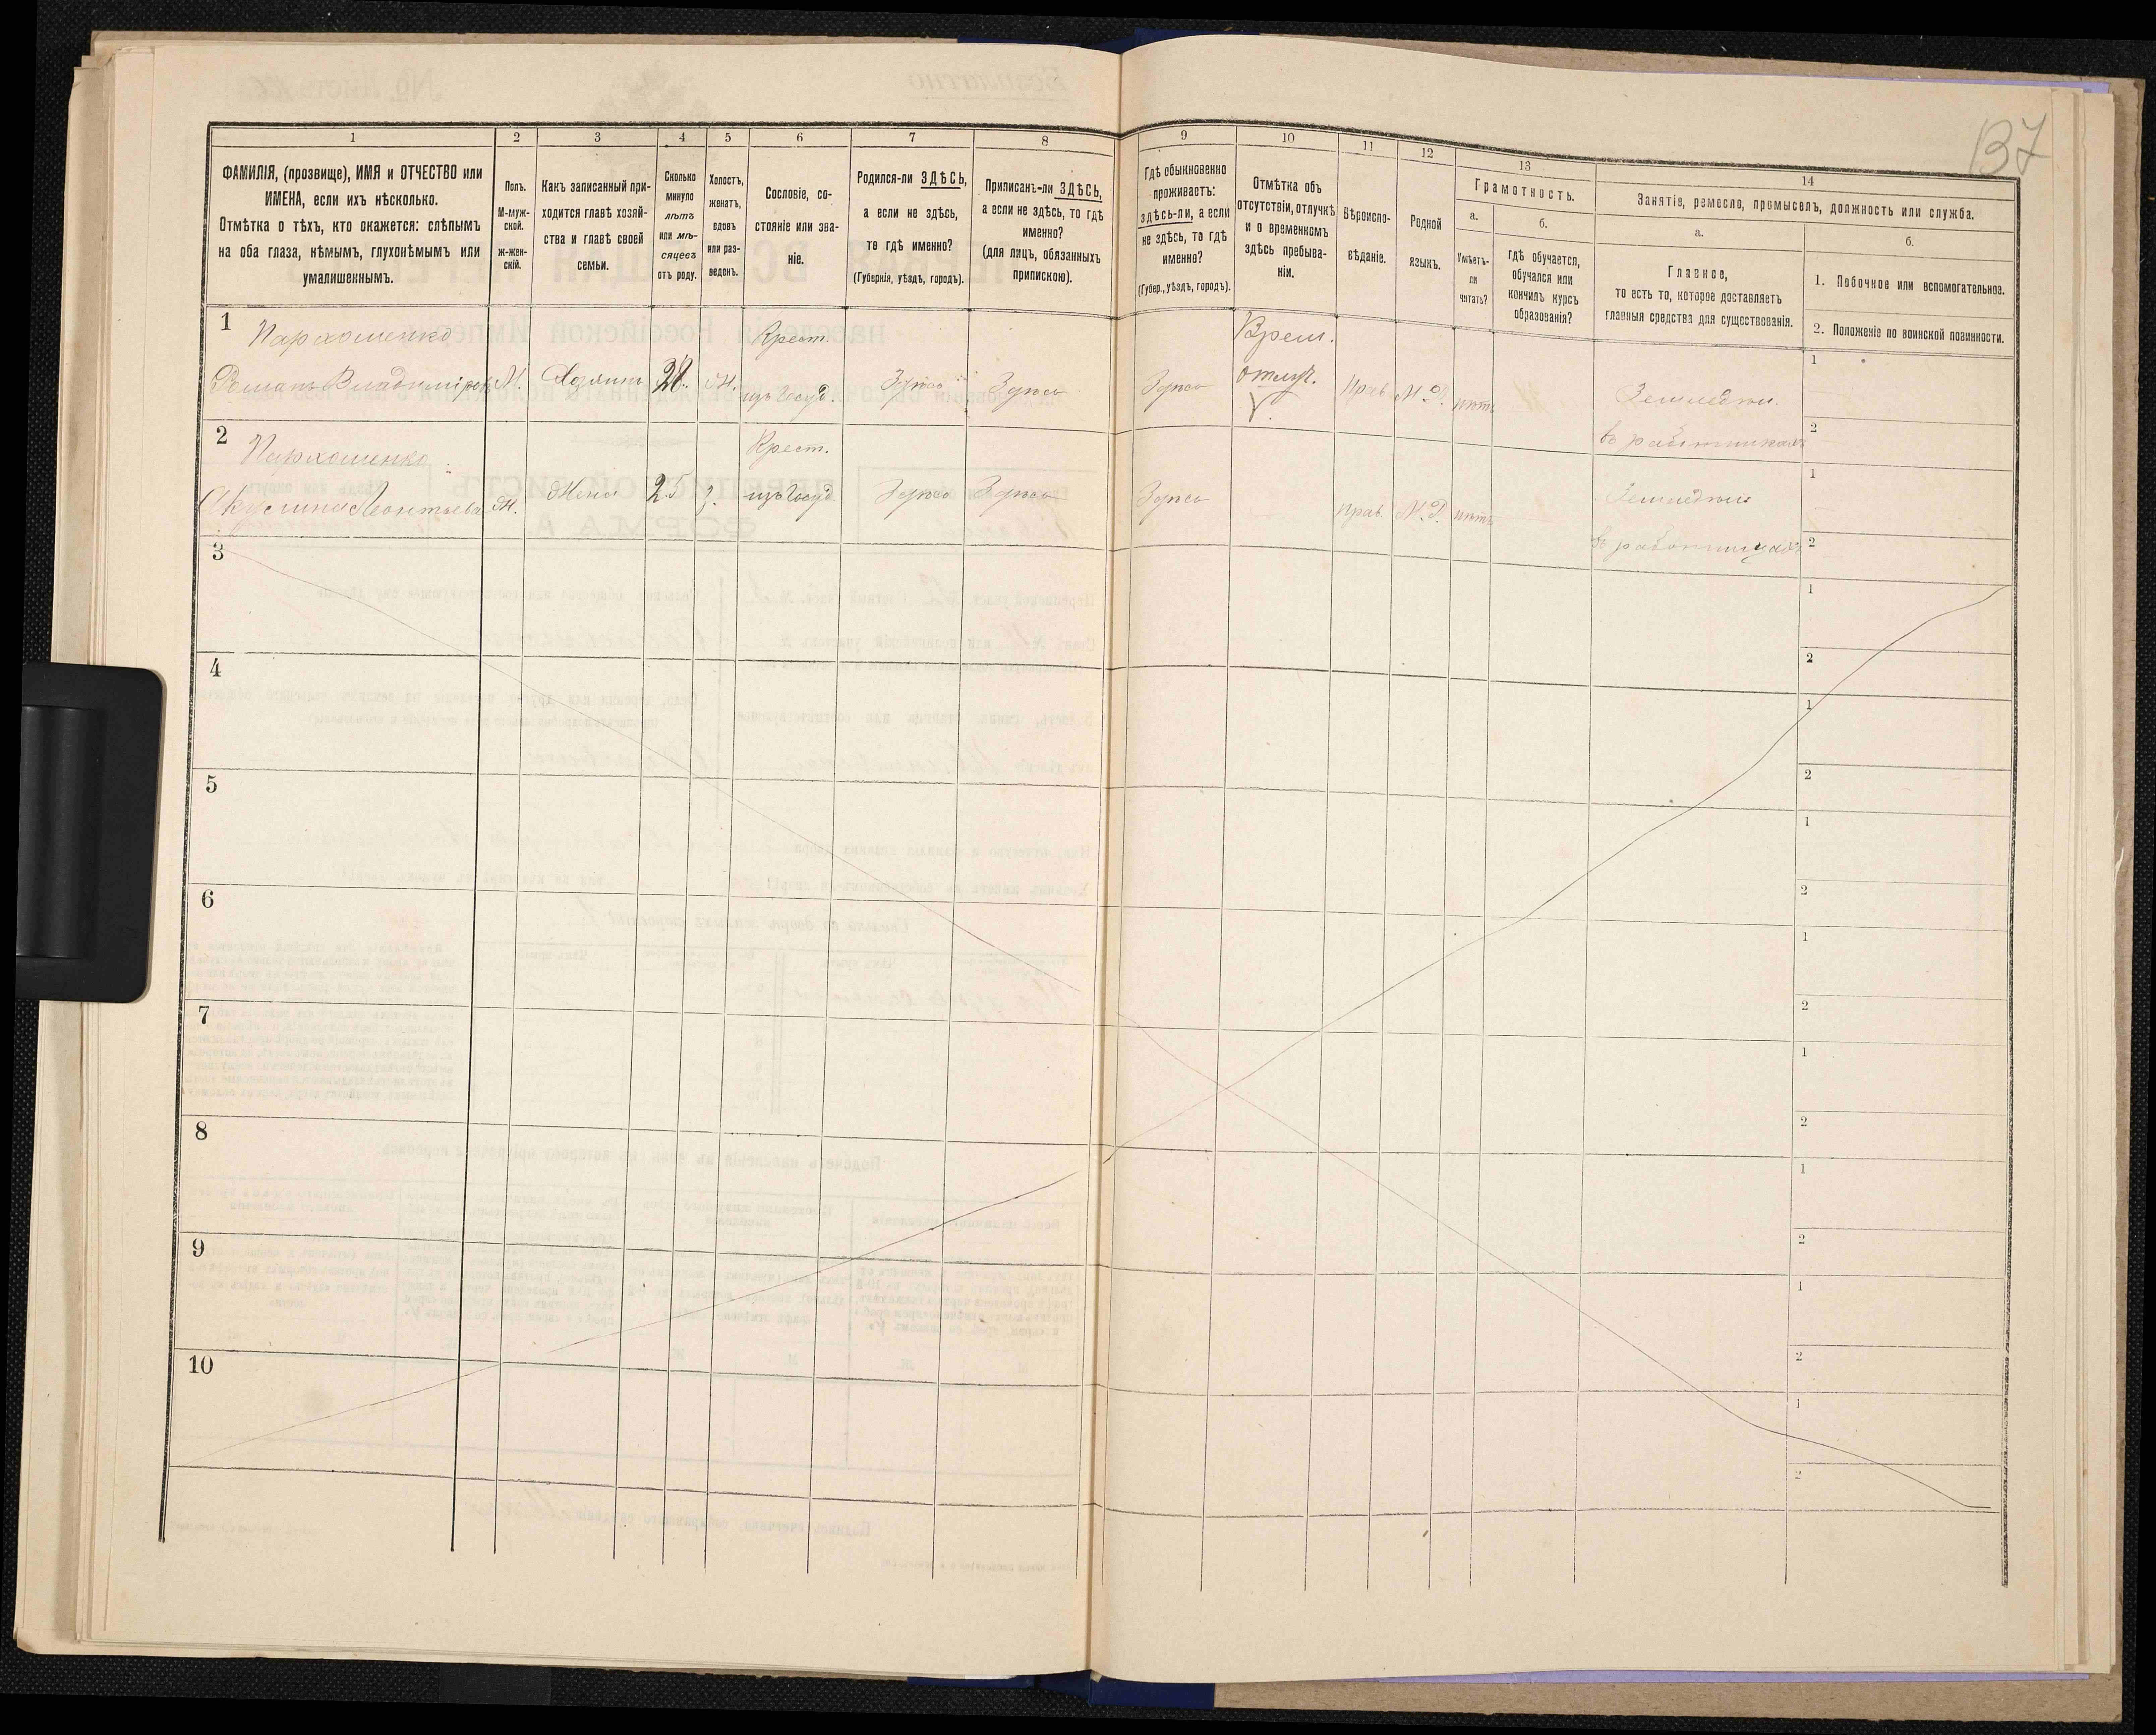 137
1 2 3 4 5 6 7 8 9 10 11 12 13 14
ФАМИЛІЯ, (прозвище), ИМЯ и ОТЧЕСТВО или
ИМЕНА, если ихъ нѣсколько.
Отмѣтка о тѣхъ, кто окажется: слѣпымъ
на оба глаза, нѣмымъ, глухонѣмымъ или
умалишеннымъ.
Полъ.
М-муж-
ской.
ж-жен-
скій.
Какъ записанный при-
ходится главѣ хозяй-
ства и главѣ своей
семьи.
Сколько
минуло
лѣтъ
или мѣ-
сяцевъ
отъ роду.
Холостъ,
женатъ,
вдовъ
или раз-
веденъ.
Сословіе, со-
стояніе или зва-
ніе.
Родился-ли ЗДѢСЬ,
а если не здѣсь,
то гдѣ именно?
(Губернія, уѣздъ, городъ).
Приписанъ-ли ЗДѢСЬ,
а если не здѣсь, то гдѣ
именно?
(для лицъ, обязанныхъ
припискою).
Гдѣ обыкновенно
проживаетъ:
здѣсь-ли, а если
не здѣсь, то гдѣ
именно?
(Губер., уѣздъ, городъ).
Отмѣтка объ
отсутствіи, отлучкѣ
и о временномъ
здѣсь пребыва-
ніи.
Вѣроиспо-
вѣданіе.
Родной
языкъ.
Грамотность.
а.
Умѣетъ-
ли
читать?
б.
гдѣ обучается,
обучался или
кончилъ курсъ
образованія?
Занятіе, ремесло, промыселъ, должность или служба.
а.
Главное,
то есть то, которое доставляетъ
главныя средства для существованія.
б.
1. Побочное или вспомогательное.
2. Положеніе по воинской повинности.
1 Пархоменко Крест. Врем. 1
Романъ Владиміров М. Хозяинъ 28. Ж. изъ госуд. Здѣсь Здѣсь Здѣсь отлуч. Прав. М.Р. нѣтъ Земледѣл.
въ работникахъ 2
2 Пархоменко Крест. 1
Акулина Леонтьева Ж. Жена 25 з. изъ госуд. Здѣсь Здѣсь Здѣсь Прав. М.Р. нѣтъ Земледѣл.
въ работницахъ 2
3 1
2
4 1
2
5 1
2
6 1
2
7 1
2
8 1
2
9 1
2
10 1
2